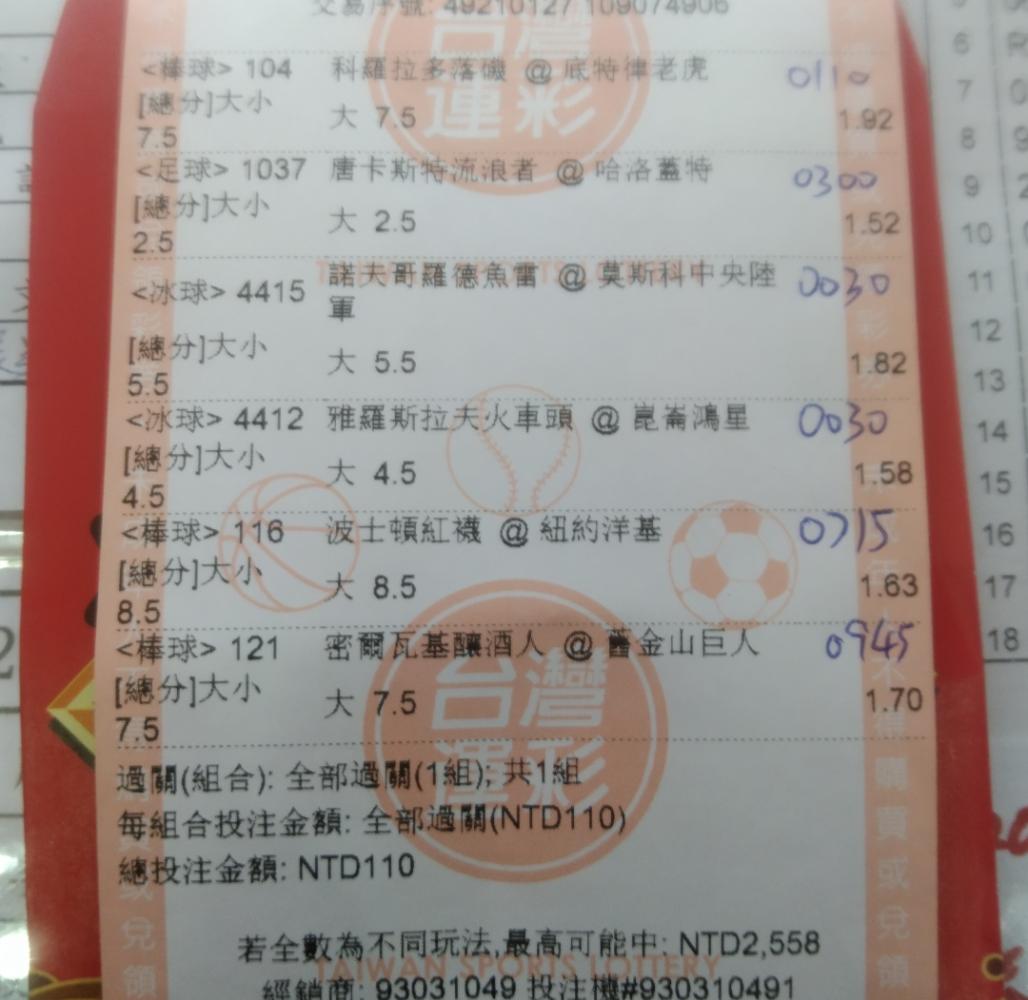 交易序號: 49210127 109074906
<棒球> 104 科羅拉多落磯 @ 底特律老虎 0110
[總分]大小
7.5 大 7.5 1.92
<足球> 1037 唐卡斯特流浪者 @ 哈洛蓋特 0300
[總分]大小
2.5 大 2.5 1.52
TAIWAN SPORTS LOTTERY
<冰球> 4415 諾夫哥羅德魚雷 @ 莫斯科中央陸軍 0030
[總分]大小
5.5 大 5.5 1.82
<冰球> 4412 雅羅斯拉夫火車頭 @ 崑崙鴻星 0030
[總分]大小
4.5 大 4.5 1.58
<棒球> 116 波士頓紅襪 @ 紐約洋基 0715
[總分]大小
8.5 大 8.5 1.63
<棒球> 121 密爾瓦基釀酒人 @ 舊金山巨人 0945
[總分]大小
7.5 大 7.5 1.70
台灣
運彩
過關(組合): 全部過關(1組); 共1組
每組合投注金額: 全部過關(NTD110)
總投注金額: NTD110
若全數為不同玩法,最高可能中: NTD2,558
TAIWAN SPORTS LOTTERY
經銷商: 93031049 投注機#930310491
台灣
運彩
購買或兌領
6
7
8
9
10
11
12
13
14
15
16
17
18